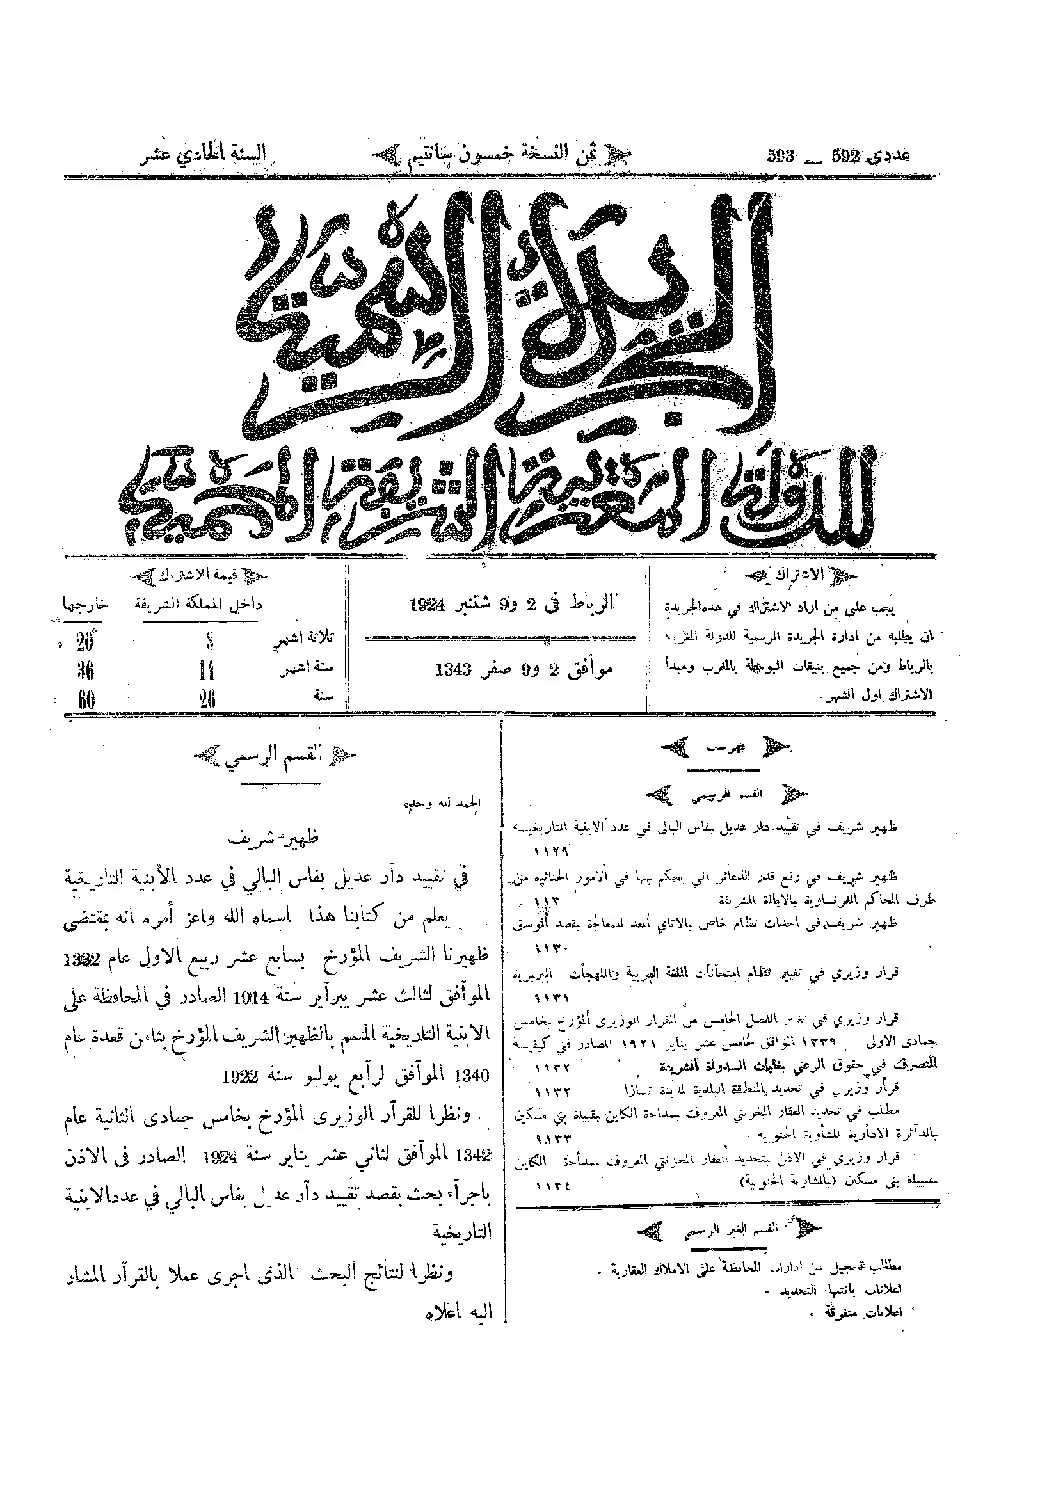 عددى 592 — 593
ثمن النسخة خمسون سانتيم
السنة الحادي عشر
الجريدة الرسمية
للدولة المغربية الشريفة المحمية
الاشتراك
يجب على من اراد الاشتراك في هذه الجريدة
ان يطلبه من ادارة الجريدة الرسمية للدولة المغربية
بالرباط ومن جميع بنيقات البوسطة بالمغرب ومبدأ
الاشتراك اول الشهر
الرباط فى 2 و9 شتنبر 1924
موافق 2 و9 صفر 1343
قيمة الاشتراك
داخل المملكة الشريفة خارجها
ثلاثة اشهر 8 20
ستة اشهر 14 36
سنة 26 60
فهرست
القسم الرسمي
ظهير شريف في تقييد دار عديل بفاس البالى في عدد الابنية التاريخية
١١٢٩
ظهير شريف في رفع قدر الذعائر التي يحكم بها في الامور الجنائية من
طرف المحاكم الفرنساوية بالايالة الشريفة
ظهير شريف في احداث نظام خاص بالاتاي المعد للمعالجة بقصد الوسق
١١٣٠
قرار وزيري في تغيير نظام امتحانات اللغة العربية واللهجات البربرية
١١٣١
قرار وزيري في تغيير الفصل الخامس من القرار الوزيرى المؤرخ بخامس
جمادى الاولى ١٣٣٩ الموافق لخامس عشر يناير ١٩٢١ الصادر في كيفية
التصرف في حقوق الرعي بغابات الدولة الشريفة ١١٣٢
قرار وزيري في تحديد المنطقة البلدية لمدينة تازا ١١٣٢
مطلب في تحديد العقار المخزني المعروف بمداحة الكاين بقبيلة بني مسكين
بالدائرة الادارية للشاوية الجنوبية ١١٣٣
قرار وزيري في الاذن بتحديد العقار المخزني المعروف بمداحة الكاين
بقبيلة بني مسكين (بالشاوية الجنوبية) ١١٣٤
القسم الغير الرسمي
مطالب تسجيل من ادارة المحافظة على الاملاك العقارية .
اعلانات بانتهاء التحديد -
اعلانات متفرقة .
القسم الرسمي
الحمد لله وحده
ظهير شريف
في تقييد دار عديل بفاس البالي في عدد الأبنية التاريخية
يعلم من كتابنا هذا اسماه الله واعز أمره انه بمقتضى
ظهيرنا الشريف المؤرخ بسابع عشر ربيع الاول عام 1332
الموافق لثالث عشر يبراير سنة 1914 الصادر في المحافظة على
الابنية التاريخية المتمم بالظهير الشريف المؤرخ بثامن قعدة عام
1340 الموافق لرابع يوليو سنة 1922
ونظرا للقرار الوزيرى المؤرخ بخامس جمادى الثانية عام
1342 الموافق لثاني عشر يناير سنة 1924 الصادر فى الاذن
باجرآء بحث بقصد تقييد دار عديل بفاس البالي في عدد الابنية
التاريخية
ونظرا لنتائج البحث الذى اجرى عملا بالقرآر المشار
اليه اعلاه